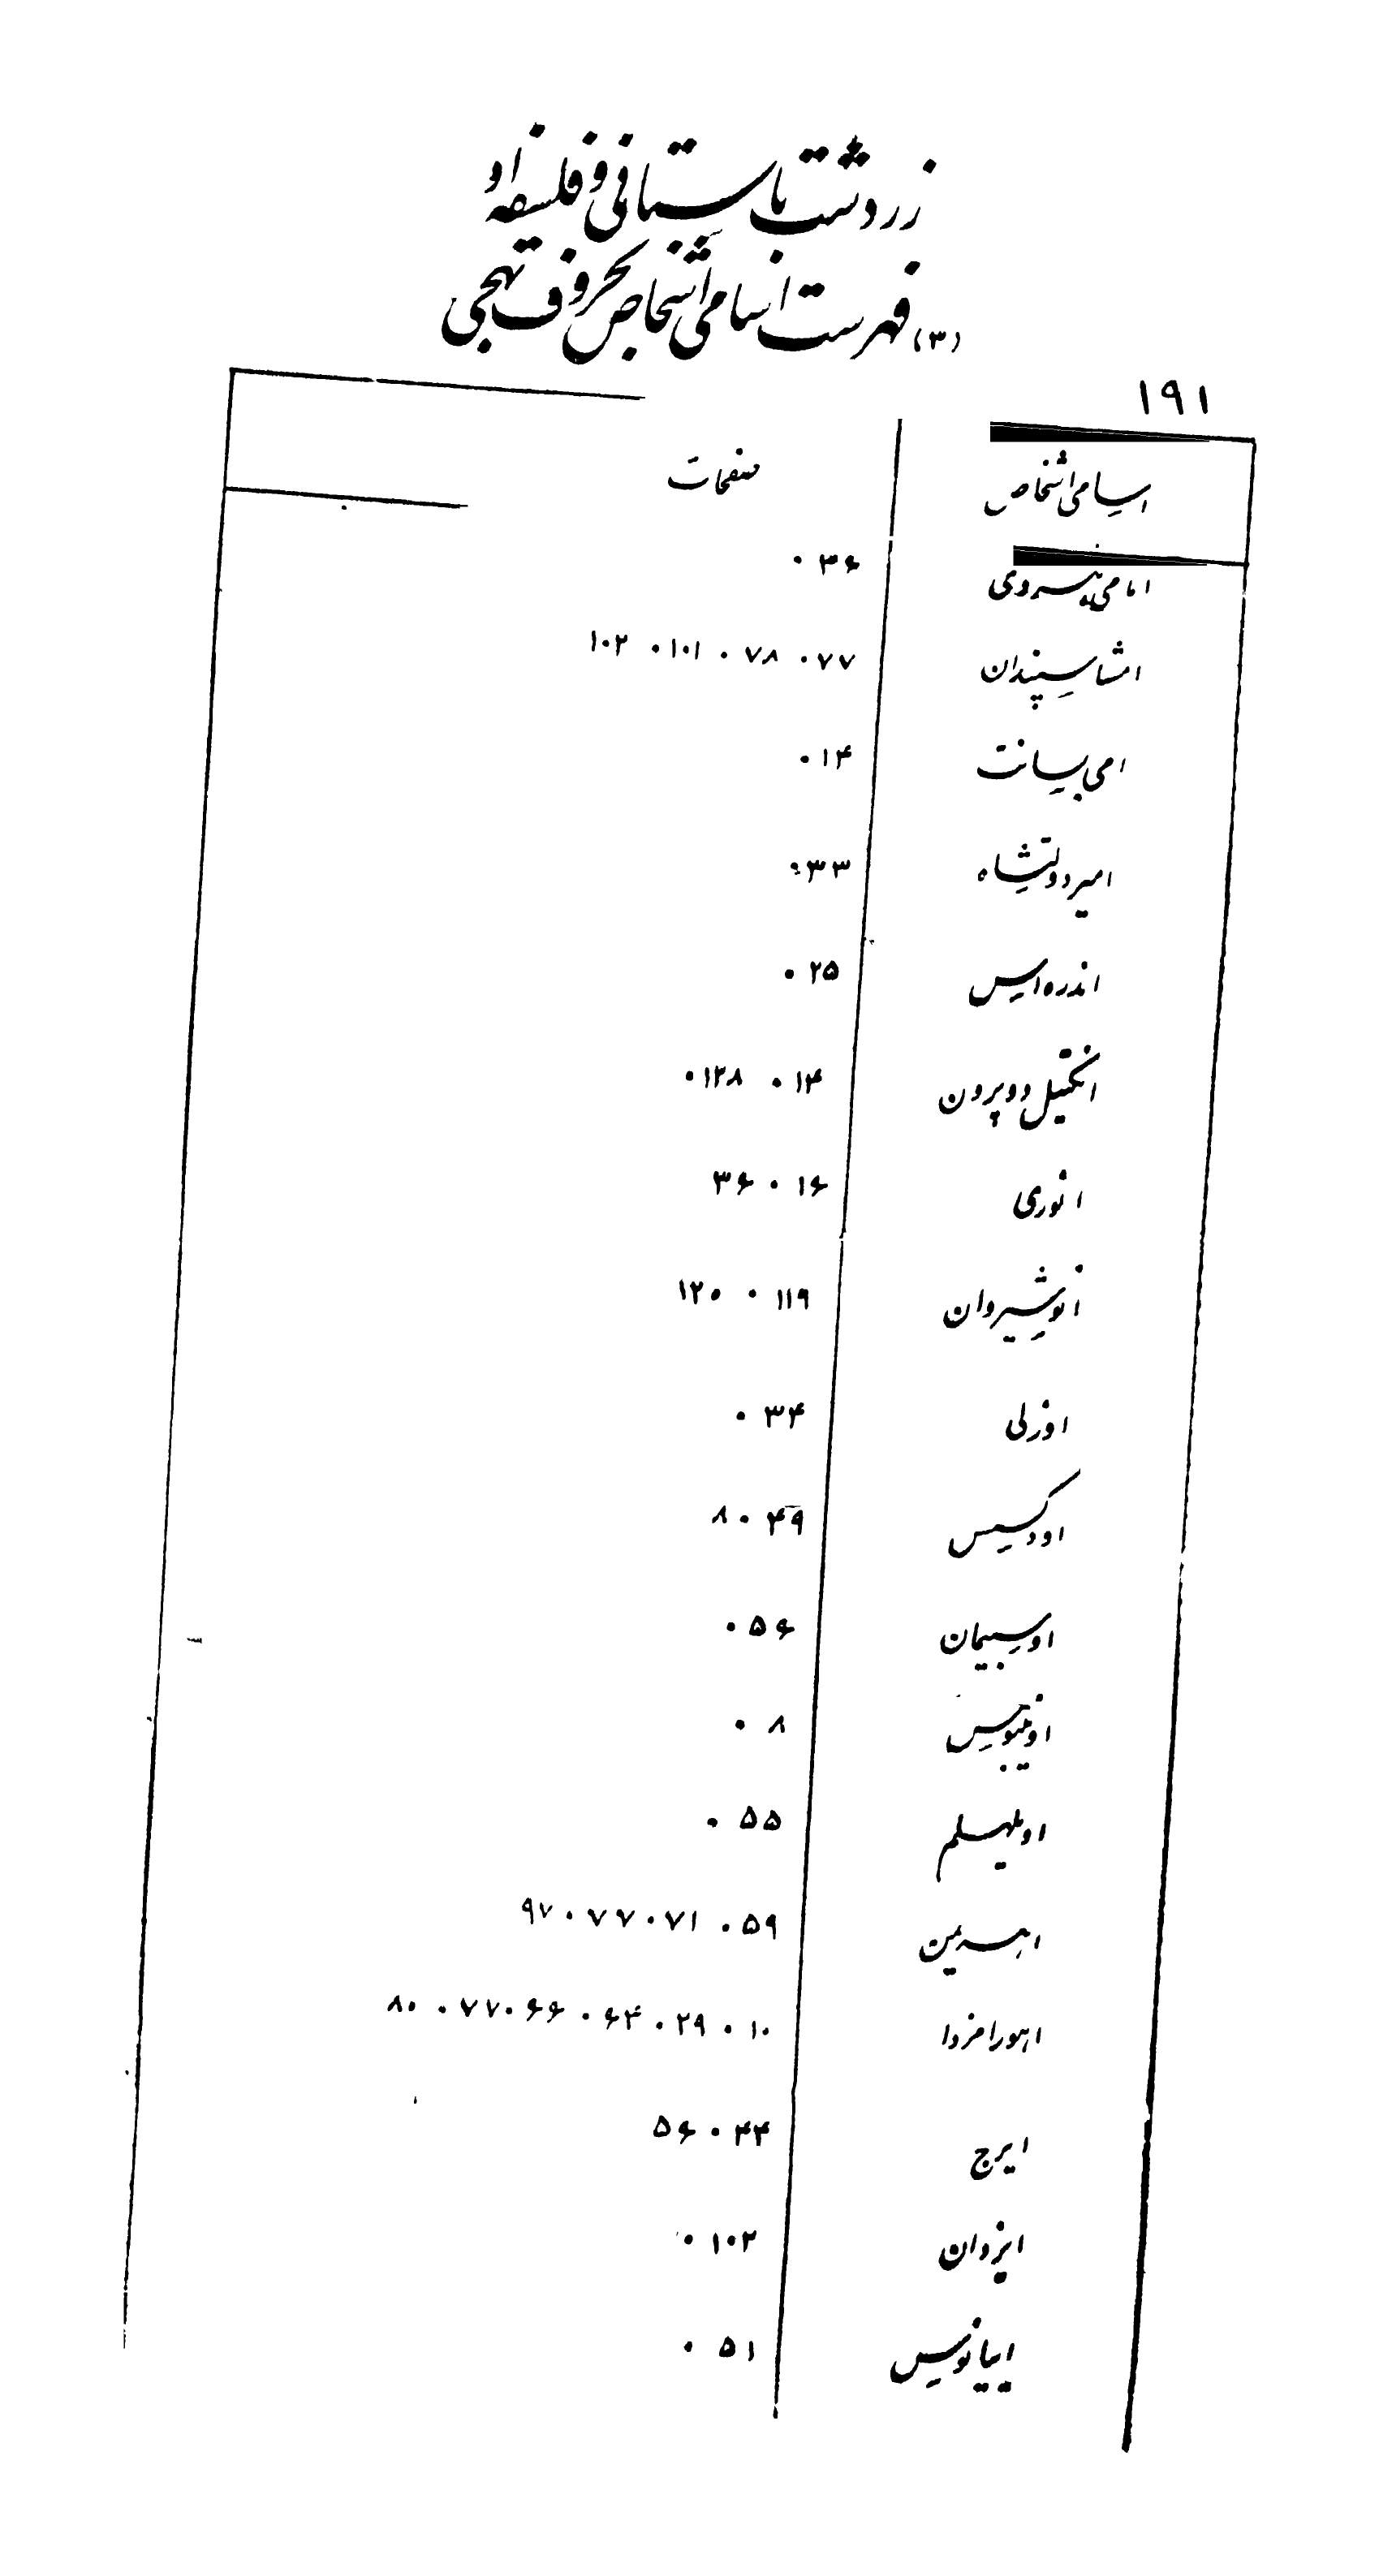 زردشت باستانی و فلسفه او
(۳) فهرست اسامی اشخاص بحروف تهجی
۱۹۱
اسامی اشخاص صفحات
امامی هروی ۳۶ ۰
امشاسپندان ۷۷ ۰ ۷۸ ۰ ۱۰۱ ۰ ۱۰۲
امی بسانت ۱۴ ۰
امیر دولتشاه ۳۳ ۰
اندره اس ۲۵ ۰
انکتیل دوپرون ۱۴ ۰ ۱۲۸ ۰
انوری ۱۶ ۰ ۳۶
انوشیروان ۱۱۹ ۰ ۱۲۰
اوزلی ۳۴ ۰
اودکسیس ۴۹ ۰ ۸
۵۶ ۰
۸ ۰
۵۵ ۰
اهریمن ۵۹ ۰ ۷۱ ۰ ۷۷ ۰ ۹۷
اهورامزدا ۱۰ ۰ ۲۹ ۰ ۶۴ ۰ ۶۶ ۰ ۷۷ ۰ ۸۰
ایرج ۴۴ ۰ ۵۶
ایزدان ۱۰۲ ۰
۵۱ ۰